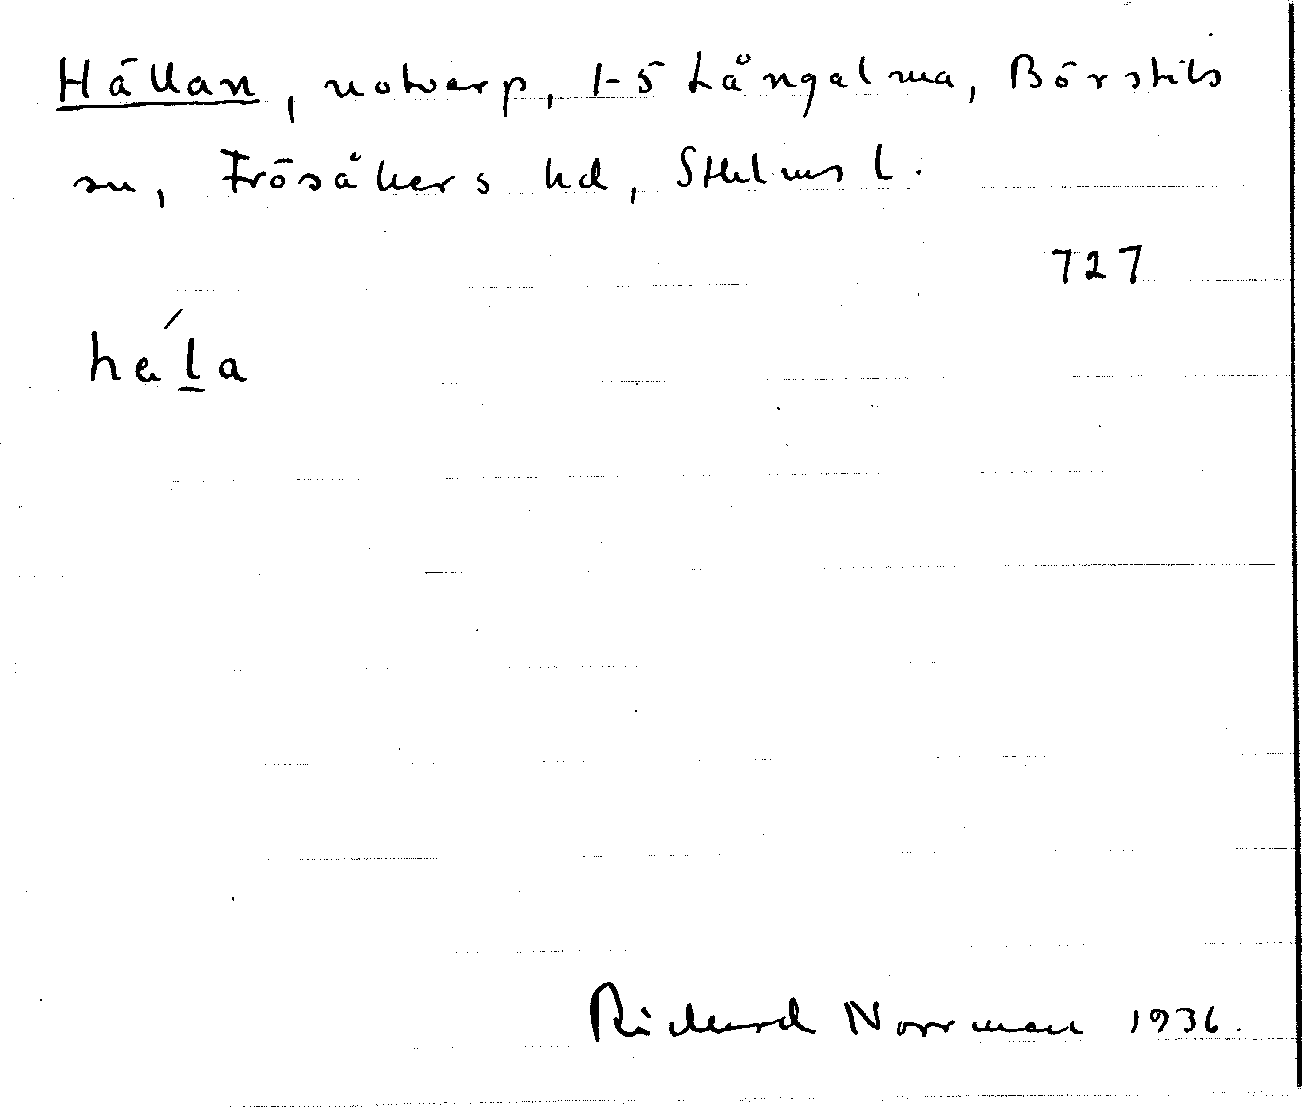 Hällan, notvarp, 1-5 Långalma, Börstils
sn, Frösåkers hd, Sthlms l.
727
hɑĺ̲a
Rickard Norrman 1936.